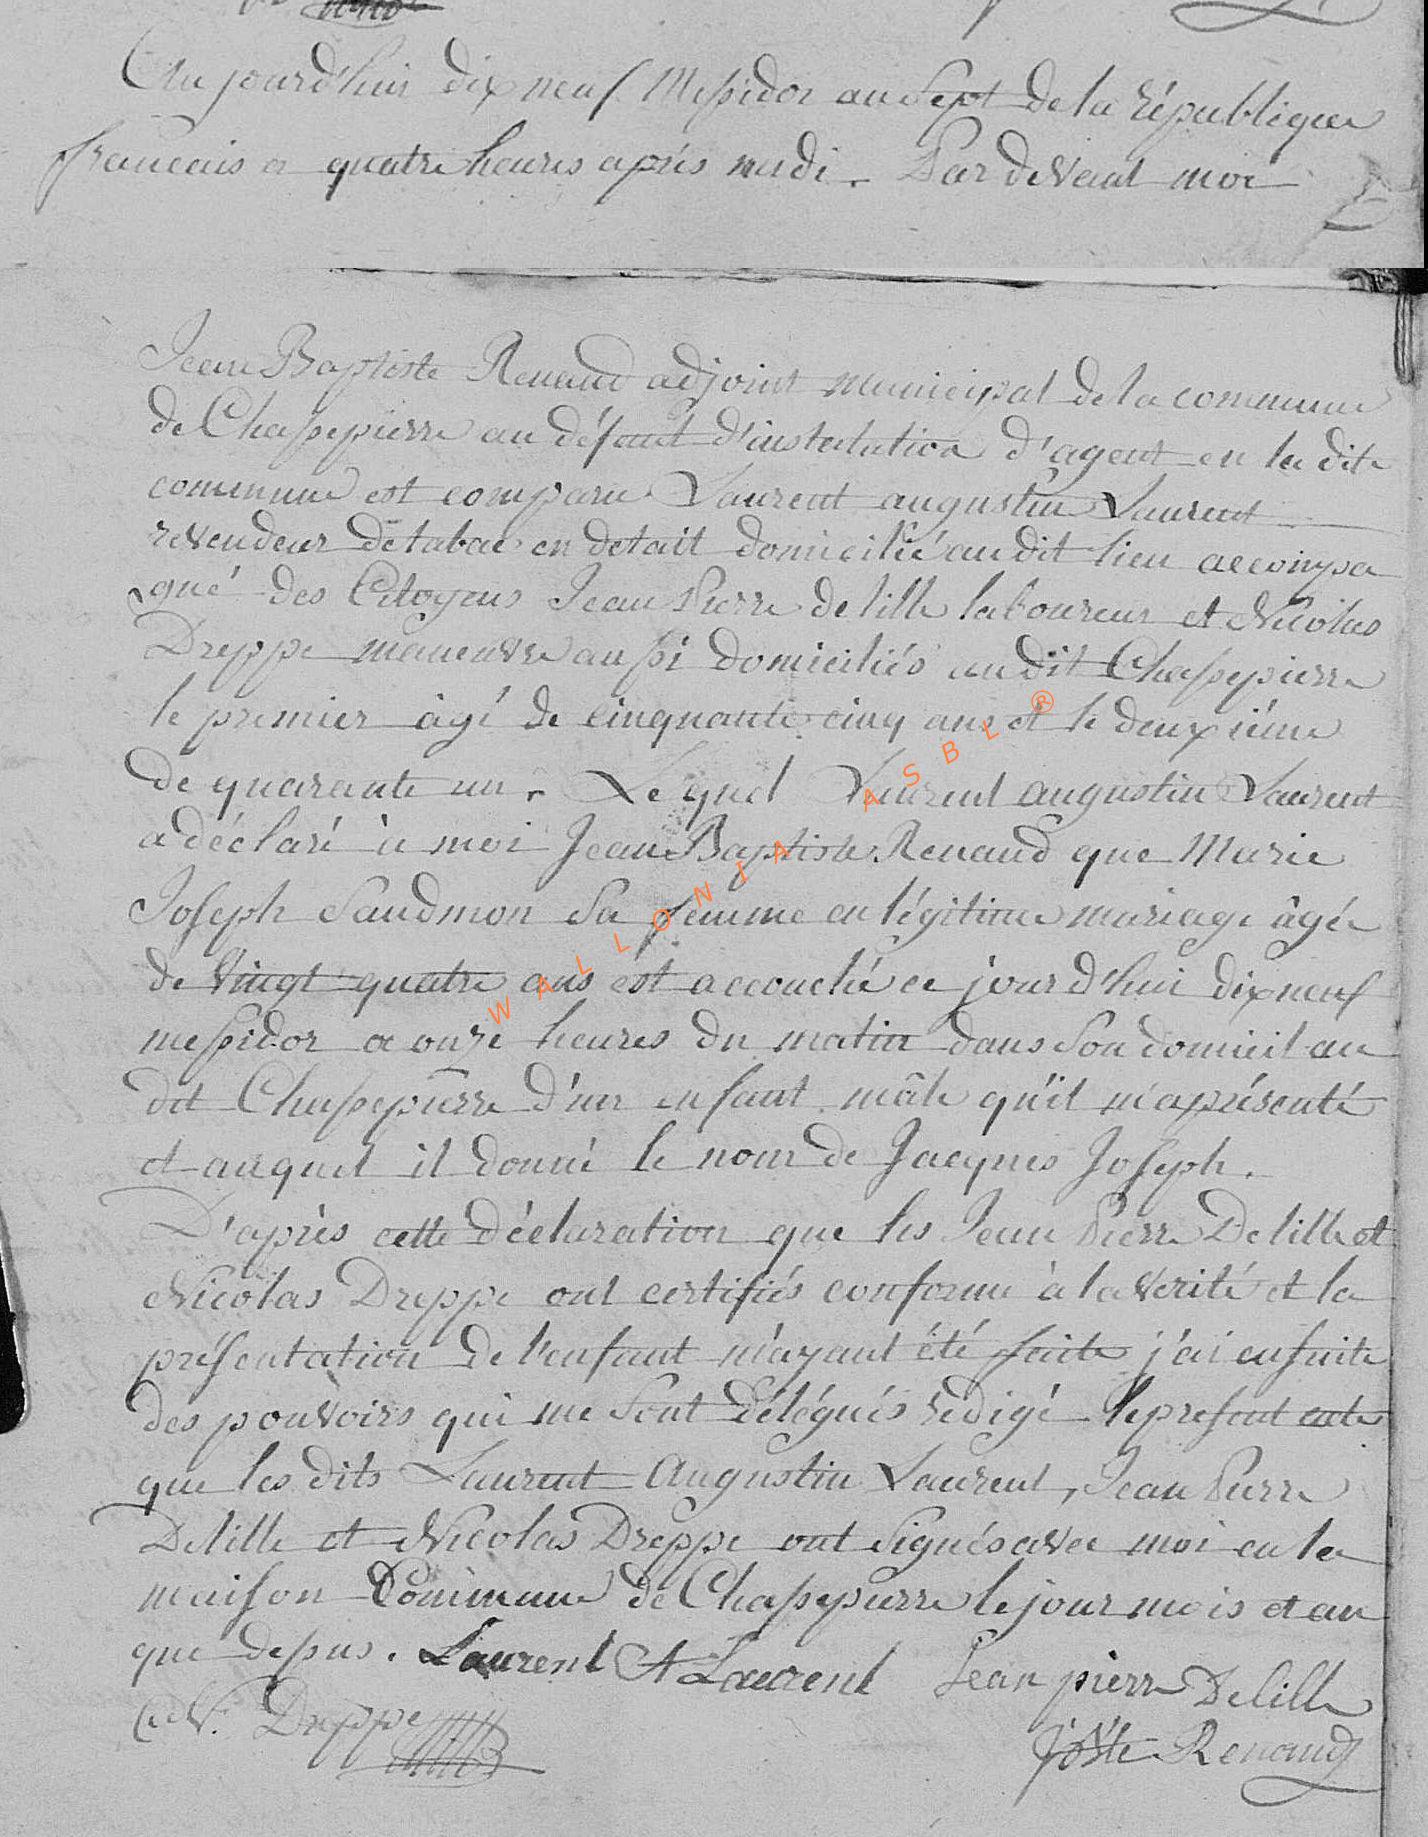 Aujourd'huis dix neuf Messidor an Sept de la République
francais a quatre heures après midi. Par devant moi
Jean Baptiste Renaud adjoint municipal de la commune
de Chassepierre au défaut d'instalation d'agent en la dite
commune est comparu Laurent augustin Laurent
revendeur de tabac en detail domicilié au dit lieu accompa
gné des Citoyens Jean Pierre delille laboureur et Nicolas
Dreppe maneuvre aussi domiciliés au dit Chassepierre
le premier âgé de cinquante cinq ans et le deuxième
de quarante un. Lequel Laurent augustin Laurent
a déclaré à moi Jean Baptiste Renaud que Marie
Joseph Saudmon sa femme en légitime mariage âgée
de vingt quatre ans est accouché ce jourd'hui dix neuf
messidor a onze heures du matin dans son domicil au
dit Chassepierre d'un enfant mâle qu'il m'a présenté
et auquel il donné le nom de Jacques Joseph.
D'après cette déclaration que les Jean Pierre Delille et
Nicolas Dreppe ont certifiés conforme à la vérité et la
présentation de l'enfant m'ayant été faite j'ai ensuite
des pouvoirs qui me sont délégués rédigé le présent acte
que les dits Laurent Augustin Laurent, Jean Pierre
Delille et Nicolas Dreppe ont signés avec moi en la
maison Commune de Chassepierre le jour mois et an
que depus. Laurent A Laurent Jean pierre Delille
N. Dreppe JBste Renaud
WALLONIA ASBL ®